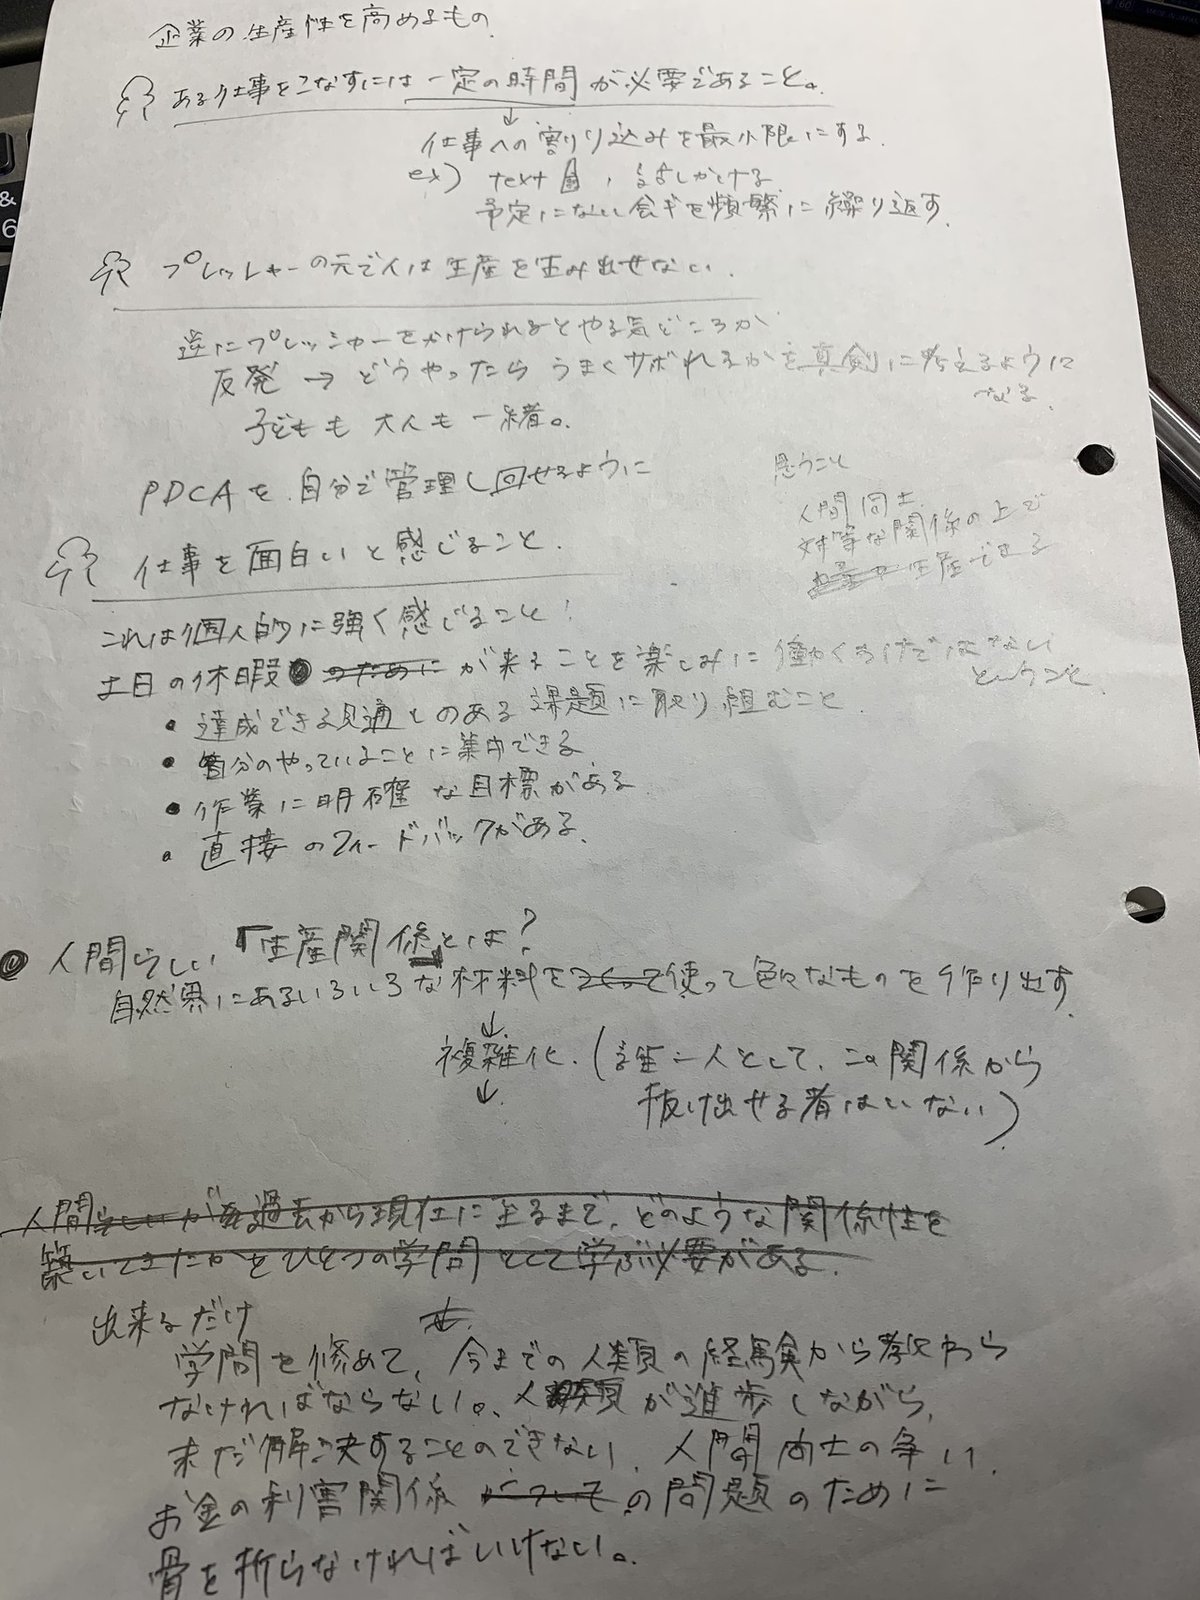 企業の生産性を高めるもの
ある仕事をこなすには一定の時間が必要であること。
↓
仕事への割り込みを最小限にする.
ex) text , 話しかける
予定にない会ギを頻繁に繰り返す.
プレッシャーの元で人は生産を生み出せない.
逆にプレッシャーをかけられるとやる気どころか
反発 → どうやったらうまくサボれるかを真剣に考えるように
なる.
子どもも大人も一緒。
PDCAを自分で管理し回せるように
思うこと
人間同士
対等な関係の上で
生産できる
仕事を面白いと感じること.
これは個人的に強く感じること!
土日の休暇 のために が来ることを楽しみに働くわけではない
ということ.
• 達成できる見通しのある課題に取り組むこと.
• 自分のやっていることに集中できる
• 作業に明確な目標がある.
• 直接のフィードバックがある.
● 人間らしい「生産関係」とは?
自然界にあるいろいろな材料を 使って色々なものを作り出す.
↓
複雑化. (誰一人として、この関係から
↓
抜け出せる者はいない)
人間 が 過去から現在に至るまで、どのような関係性を
築いてきたかをひとつの学問として学ぶ必要がある.
出来るだけ
↓
学問を修めて、今までの人類の経験から教わら
なければならない。、人類が進歩しながら、
未だ解決することのできない、人間同士の争い、
お金の利害関係 について の問題のために
骨を折らなければいけない。